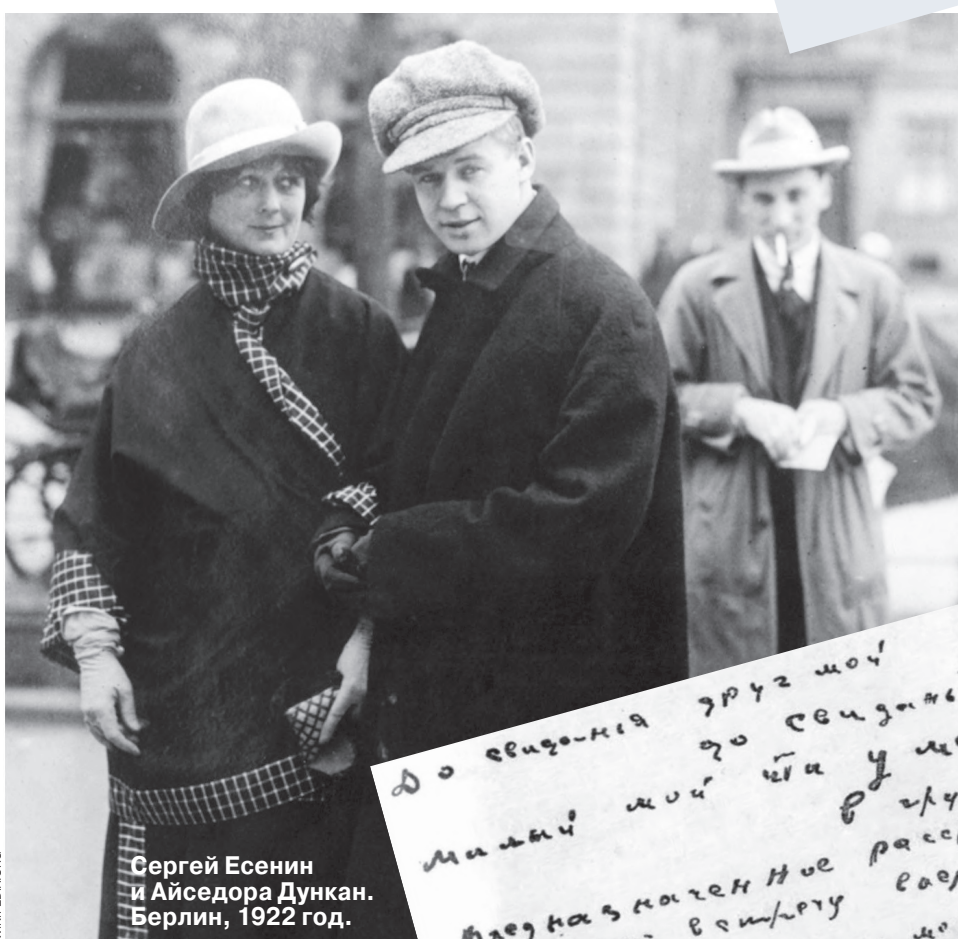 Сергей Есенин
и Айседора Дункан.
Берлин, 1922 год.
До свиданья друг мой
до свидань
Милый мой ты у м
в гру
Предназначенное расс
встречу